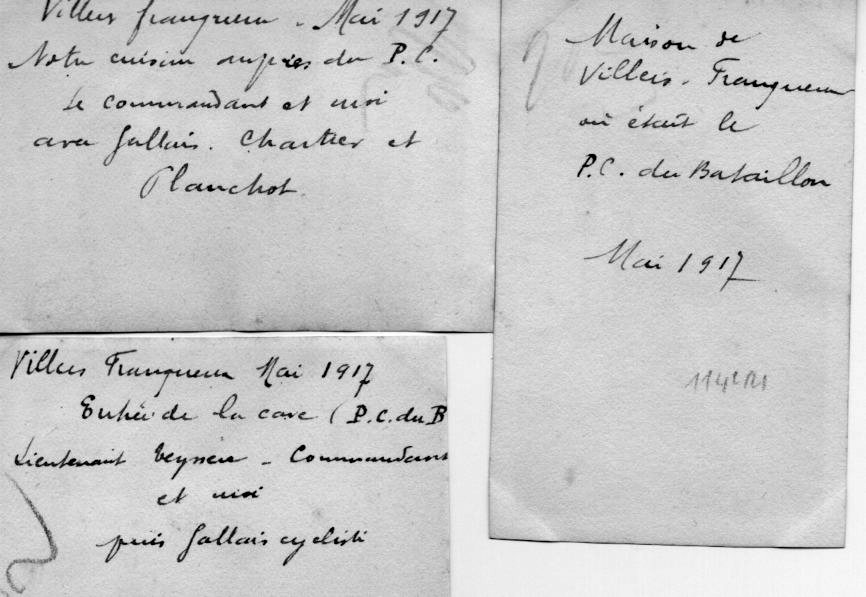 Villers franqueux - Mai 1917
Notre cuisine auprès du P.C.
Le commandant et moi
avec Gallais. Chartier et
Planchot.
Maison de
Villers-Franqueux
où était le
P.C. du Bataillon
Mai 1917
114e RI
Villers Franqueux Mai 1917
Entrée de la cave (P.C. du B
Lieutenant - Commandant
et moi
puis Gallais cycliste